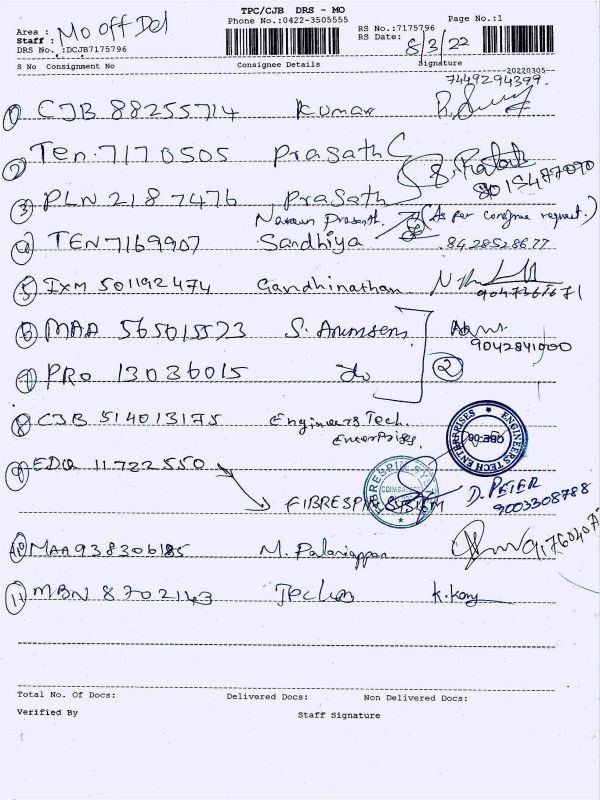 TPC/CJB DRS - MO
Phone No.:0422-3505555
RS No.:7175796
RS Date: 8/3/22
Page No.:1
Area : Mo Off Del
Staff :
DRS No. :DCJB7175796
S No Consignment No Consignee Details Signature
20220305
7449294399.
1 CJB 88255714 Kumar
2 Ten.7170505 Prasath
9013487090
3 PLN 2187476 Prasath
Prasanth. (As per consignee request.)
4 TEN 7169907 Sandhiya 8428528677
5 IXM 501192474 Gandhinathan
9047361671
6 MAA 565015523 S.
9042841000
7 PRO 13036015 do 2
8 CJB 514013175 Engineers Tech.
Enterprises.
ENGINEERS TECH ENTERPRISES
CBE-06
9 EDQ 11722550
FIBRESPIN SYSTEM D. PETER
9003308788
10 MAA938306185 M. Palaniappan
11 MBN 8702143
Total No. Of Docs: Delivered Docs: Non Delivered Docs:
Verified By Staff Signature